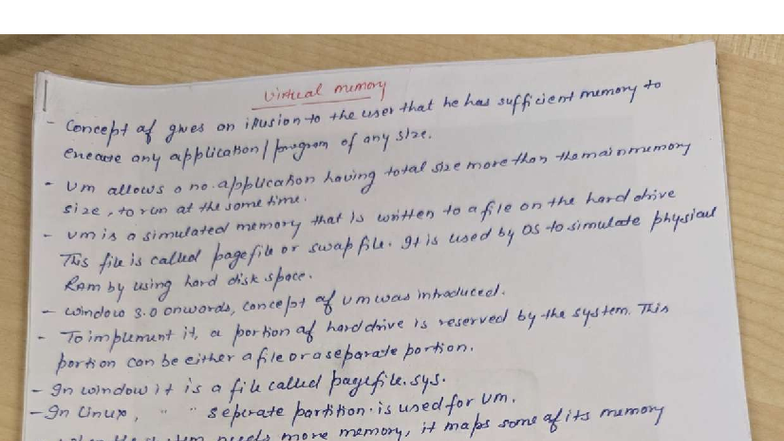 Virtual memory
- Concept of gives an illusion to the user that he has sufficient memory to
execute any application / program of any size.
- Vm allows a no. application having total size more than the main memory
size, to run at the same time.
- Vm is a simulated memory that is written to a file on the hard drive
This file is called pagefile or swap file. It is used by OS to simulate physical
RAM by using hard disk space.
- window 3.0 onwords, concept of Vm was introduced.
- To implement it, a portion of hard drive is reserved by the system. This
portion can be either a file or a separate portion.
- In window it is a file called pagefile.sys.
- In Linux, " " seperate partition is used for Vm.
needs more memory, it maps some of its memory